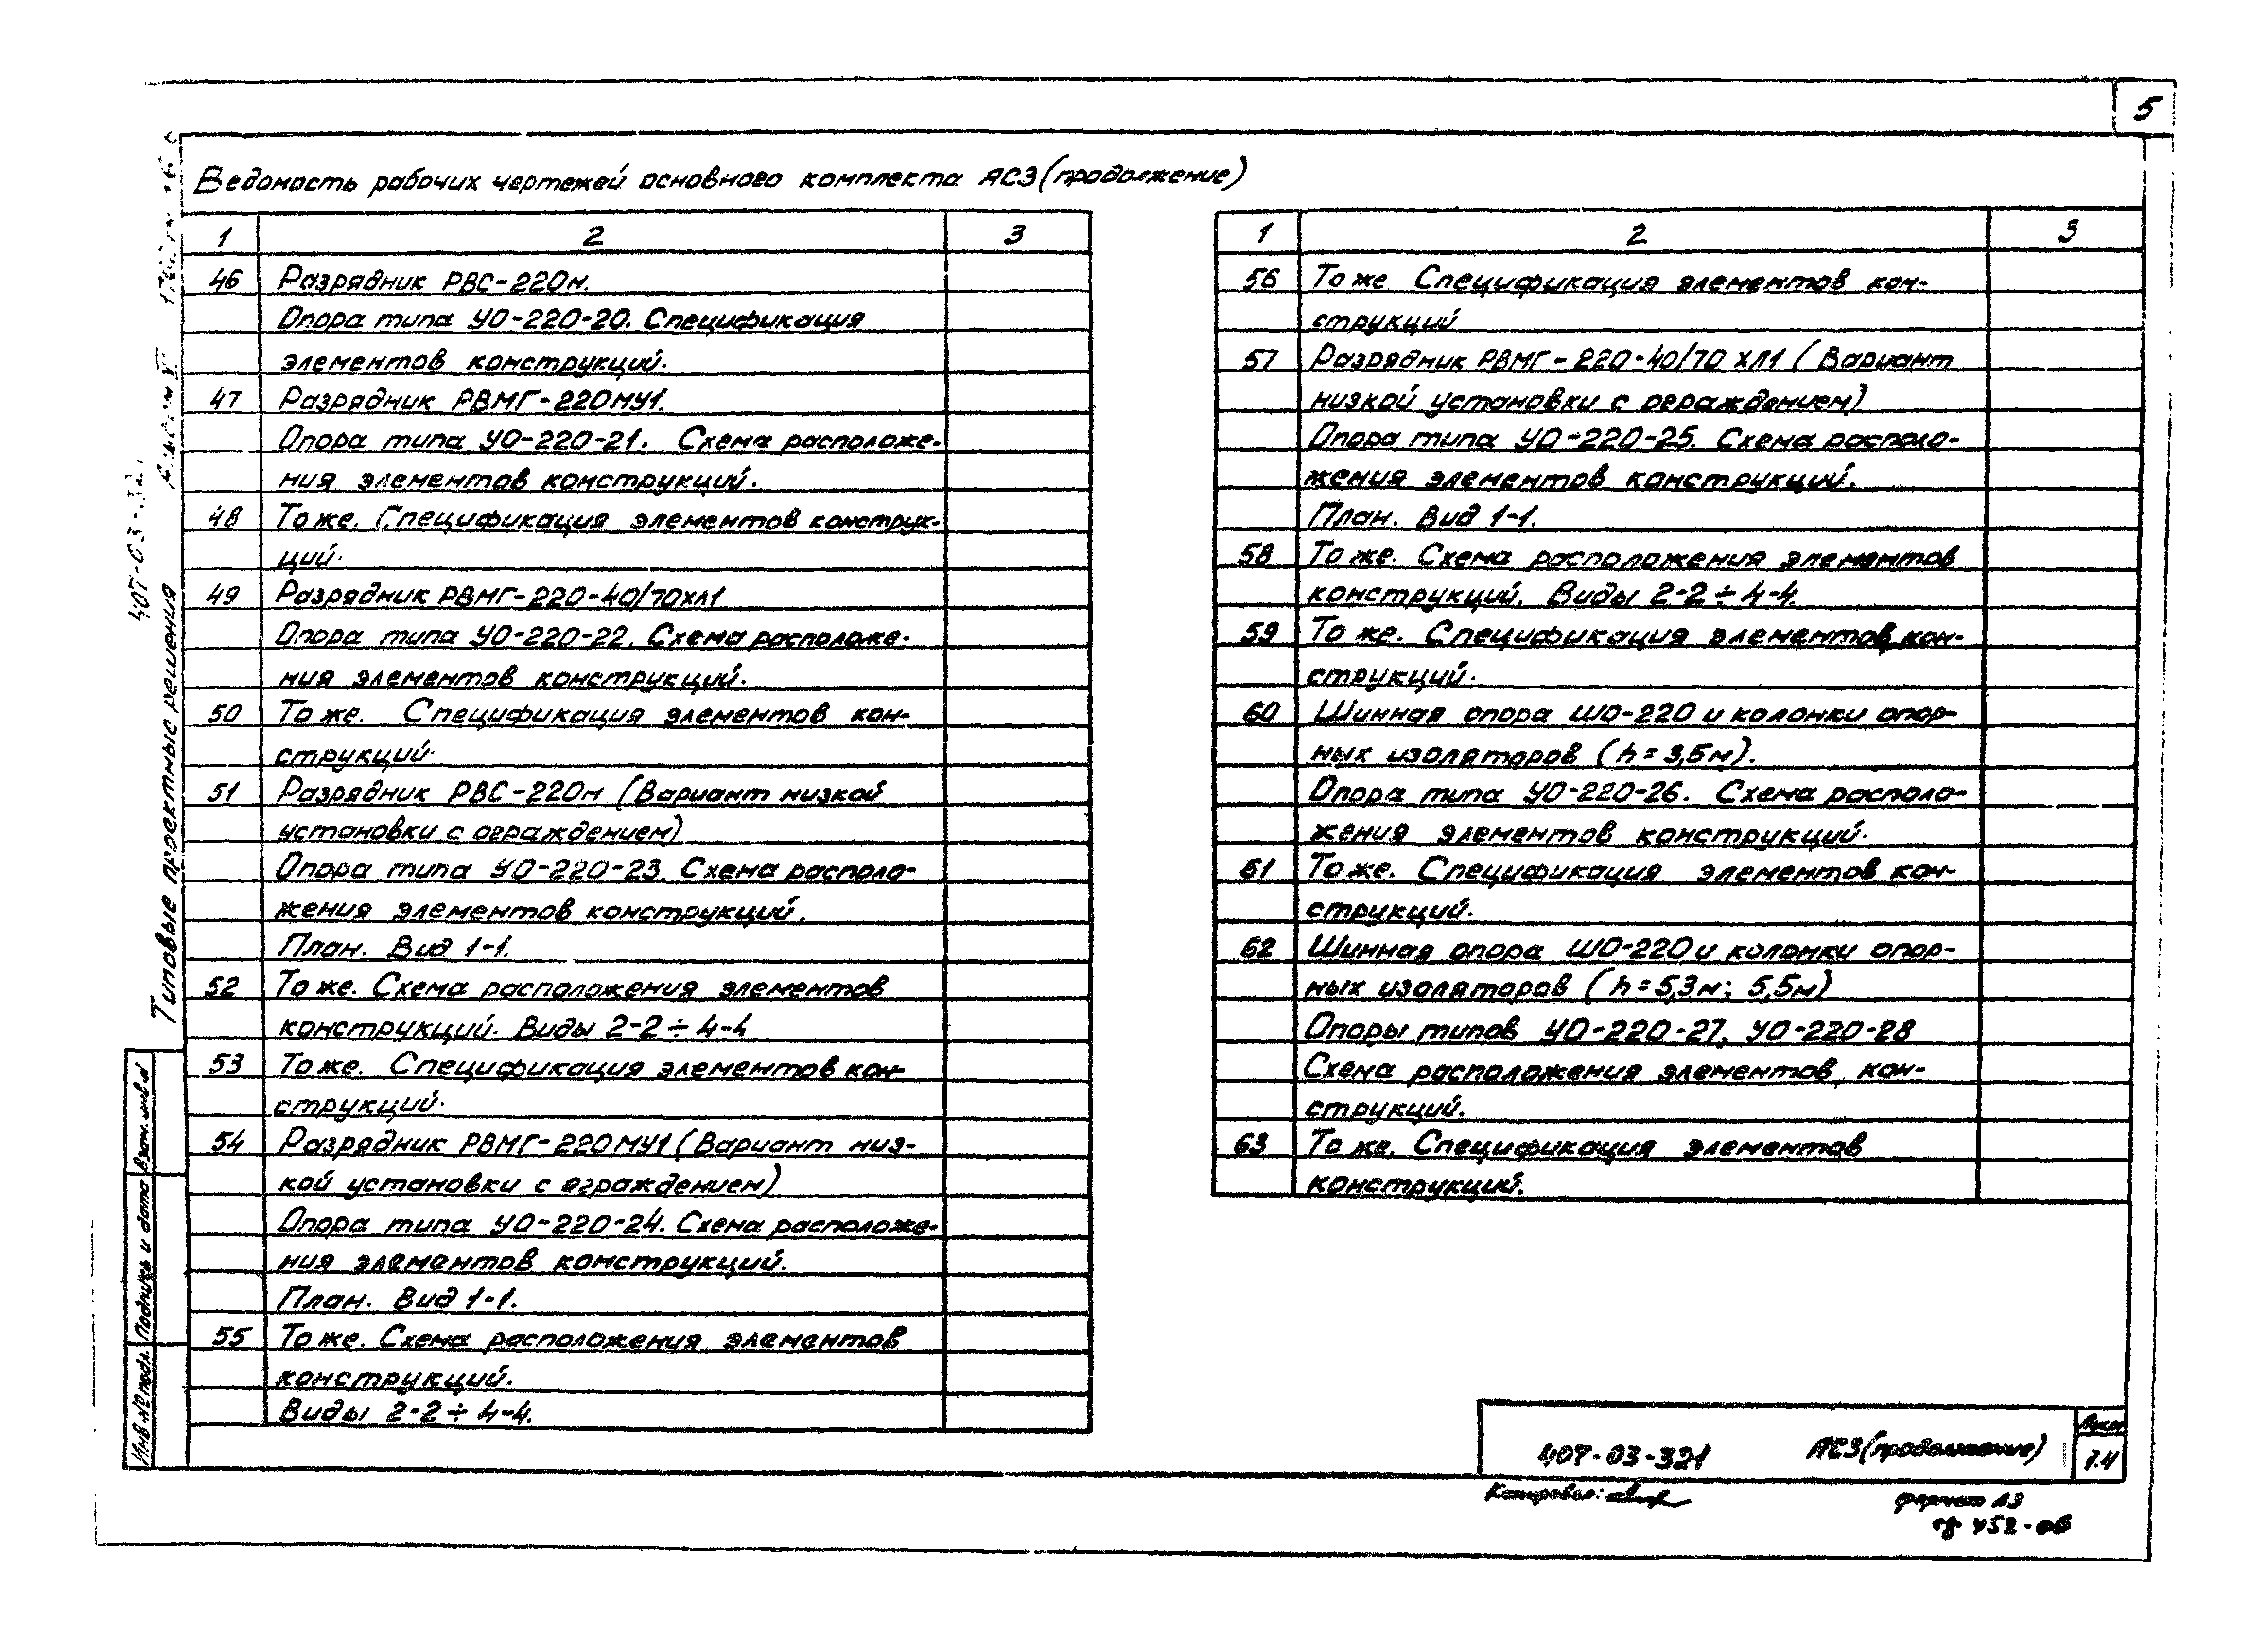 5
Ведомость рабочих чертежей основного комплекта АС3 (продолжение)
1 2 3
46 Разрядник РВС-220м.
Опора типа УО-220-20. Спецификация
элементов конструкций.
47 Разрядник РВМГ-220МУ1.
Опора типа УО-220-21. Схема расположе-
ния элементов конструкций.
48 То же. Спецификация элементов конструк-
ций.
49 Разрядник РВМГ-220-40/70ХЛ1
Опора типа УО-220-22. Схема расположе-
ния элементов конструкций.
50 То же. Спецификация элементов кон-
струкций.
51 Разрядник РВС-220м (Вариант низкой
установки с ограждением)
Опора типа УО-220-23. Схема располо-
жения элементов конструкций.
План. Вид 1-1.
52 То же. Схема расположения элементов
конструкций. Виды 2-2 ÷ 4-4
53 То же. Спецификация элементов кон-
струкций.
54 Разрядник РВМГ-220МУ1 (Вариант низ-
кой установки с ограждением)
Опора типа УО-220-24. Схема расположе-
ния элементов конструкций.
План. Вид 1-1.
55 То же. Схема расположения элементов
конструкций.
Виды 2-2 ÷ 4-4.
1 2 3
56 То же Спецификация элементов кон-
струкций
57 Разрядник РВМГ-220-40/70 ХЛ1 (Вариант
низкой установки с ограждением)
Опора типа УО-220-25. Схема располо-
жения элементов конструкций.
План. Вид 1-1.
58 То же. Схема расположения элементов
конструкций. Виды 2-2 ÷ 4-4.
59 То же. Спецификация элементов кон-
струкций.
60 Шинная опора ШО-220 и колонки опор-
ных изоляторов (h=3,5м).
Опора типа УО-220-26. Схема располо-
жения элементов конструкций.
61 То же. Спецификация элементов кон-
струкций.
62 Шинная опора ШО-220 и колонки опор-
ных изоляторов (h=5,3м; 5,5м)
Опоры типов УО-220-27, УО-220-28
Схема расположения элементов кон-
струкций.
63 То же. Спецификация элементов
конструкций.
Типовые проектные решения
Взам. инв. №
Подпись и дата
Инв. № подл.
407-03-321 АС3 (продолжение)
Лист
1.4
Копировал:
формат А3